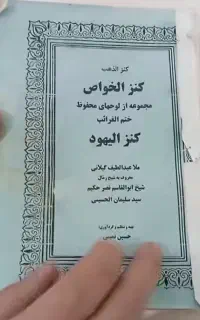 کنز الذهب
کنز الخواص
مجموعه از لوحهای محفوظ
ختم الغرائب
کنز الیهود
ملا عبداللطیف گیلانی
معروف به شیخ رمال
شیخ ابوالقاسم نصر حکیم
سید سلیمان الحسینی
تهیه و تنظیم و گردآوری:
حسین نمینی